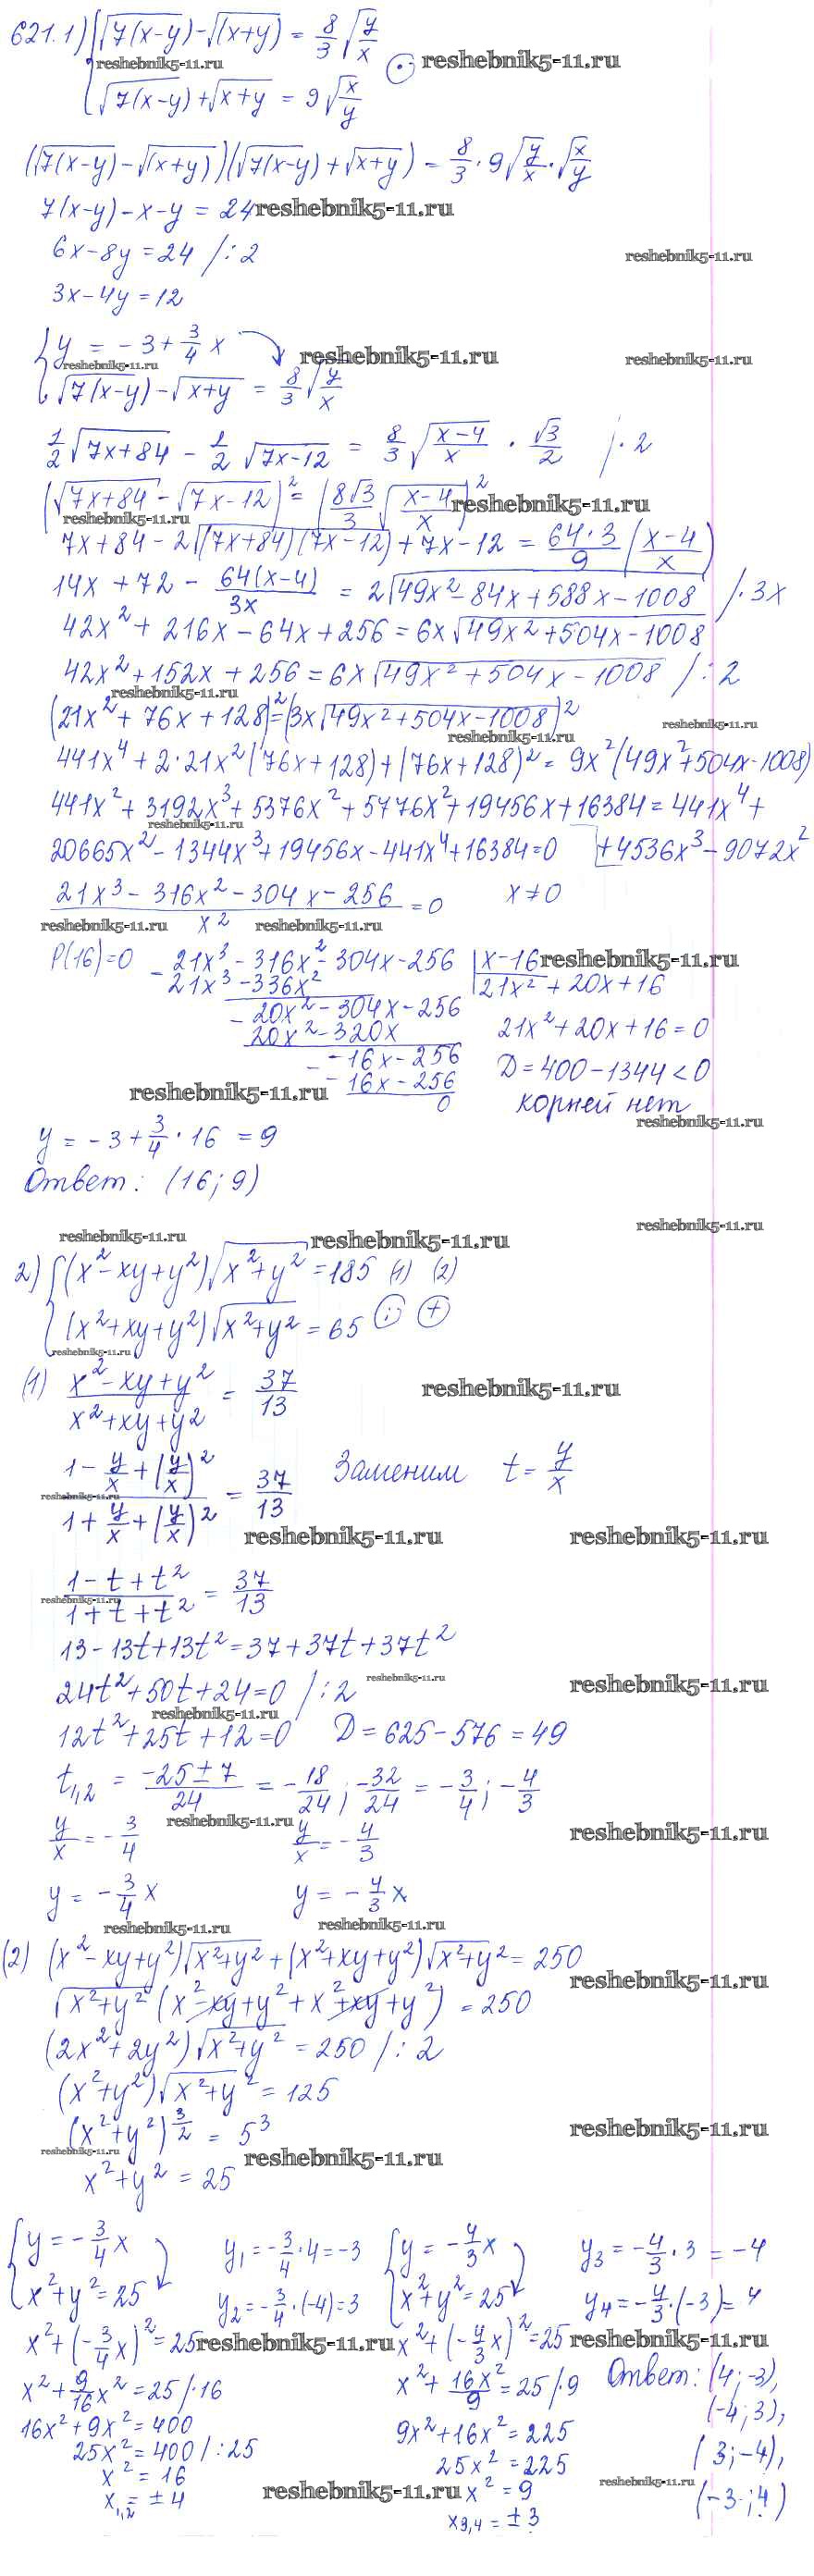 621.1) { √(7(x-y)) - √(x+y) = 8/3 √(y/x)
reshebnik5-11.ru reshebnik5-11.ru
√(7(x-y)) + √(x+y) = 9√(x/y) ⊙
(√(7(x-y)) - √(x+y))(√(7(x-y)) + √(x+y)) = 8/3 · 9√(y/x) · √(x/y)
7(x-y) - x - y = 24 reshebnik5-11.ru
6x - 8y = 24 /:2 reshebnik5-11.ru
3x - 4y = 12
{ y = -3 + 3/4 x reshebnik5-11.ru reshebnik5-11.ru
reshebnik5-11.ru
√(7(x-y)) - √(x+y) = 8/3 √(y/x)
1/2 √(7x+84) - 1/2 √(7x-12) = 8/3 √((x-4)/x) · √3/2 /·2
(√(7x+84) - √(7x-12))² = (8√3/3 √((x-4)/x))² reshebnik5-11.ru
reshebnik5-11.ru
7x+84 - 2√((7x+84)(7x-12)) + 7x-12 = 64·3/9 ((x-4)/x)
14x + 72 - 64(x-4)/3x = 2√(49x²-84x+588x-1008) /·3x
42x² + 216x - 64x + 256 = 6x√(49x²+504x-1008)
42x² + 152x + 256 = 6x√(49x²+504x-1008) /:2
reshebnik5-11.ru
(21x² + 76x + 128)² = (3x√(49x²+504x-1008))² reshebnik5-11.ru
reshebnik5-11.ru
441x⁴ + 2·21x²(76x+128) + (76x+128)² = 9x²(49x²+504x-1008)
441x² + 3192x³ + 5376x² + 5776x² + 19456x + 16384 = 441x⁴ +
reshebnik5-11.ru
20665x² - 1344x³ + 19456x - 441x⁴ + 16384 = 0 + 4536x³ - 9072x²
(21x³ - 316x² - 304x - 256)/x² = 0 x ≠ 0
reshebnik5-11.ru reshebnik5-11.ru
P(16)=0 - 21x³ - 316x² - 304x - 256 | x-16 reshebnik5-11.ru
21x³ - 336x² 21x² + 20x + 16
- 20x² - 304x - 256
20x² - 320x 21x² + 20x + 16 = 0
- -16x - 256 D = 400 - 1344 < 0
reshebnik5-11.ru -16x - 256
0 корней нет
reshebnik5-11.ru
y = -3 + 3/4 · 16 = 9
Ответ: (16; 9)
reshebnik5-11.ru reshebnik5-11.ru reshebnik5-11.ru
2) { (x²-xy+y²)√(x²+y²) = 185 (1) (2)
(x²+xy+y²)√(x²+y²) = 65 (:) (+)
reshebnik5-11.ru
(1) (x²-xy+y²)/(x²+xy+y²) = 37/13 reshebnik5-11.ru
(1 - y/x + (y/x)²)/(1 + y/x + (y/x)²) = 37/13 Заменим t = y/x
reshebnik5-11.ru reshebnik5-11.ru reshebnik5-11.ru
(1-t+t²)/(1+t+t²) = 37/13
reshebnik5-11.ru
13 - 13t + 13t² = 37 + 37t + 37t²
24t² + 50t + 24 = 0 /:2 reshebnik5-11.ru reshebnik5-11.ru
reshebnik5-11.ru
12t² + 25t + 12 = 0 D = 625 - 576 = 49
t₁,₂ = (-25±7)/24 = -18/24; -32/24 = -3/4; -4/3
reshebnik5-11.ru
y/x = -3/4 y/x = -4/3 reshebnik5-11.ru
y = -3/4 x y = -4/3 x
reshebnik5-11.ru reshebnik5-11.ru
(2) (x²-xy+y²)√(x²+y²) + (x²+xy+y²)√(x²+y²) = 250
reshebnik5-11.ru
√(x²+y²) (x²-xy+y²+x²+xy+y²) = 250
(2x²+2y²)√(x²+y²) = 250 /:2
(x²+y²)√(x²+y²) = 125
(x²+y²)^(3/2) = 5³ reshebnik5-11.ru
reshebnik5-11.ru reshebnik5-11.ru
x²+y² = 25
{ y = -3/4 x y₁ = -3/4 · 4 = -3 { y = -4/3 x y₃ = -4/3 · 3 = -4
x²+y² = 25 y₂ = -3/4 · (-4) = 3 x²+y² = 25 y₄ = -4/3 · (-3) = 4
x² + (-3/4 x)² = 25 reshebnik5-11.ru x² + (-4/3 x)² = 25 reshebnik5-11.ru
x² + 9/16 x² = 25 /·16 x² + 16x²/9 = 25 /·9 Ответ: (4; -3),
16x² + 9x² = 400 9x² + 16x² = 225 (-4; 3),
25x² = 400 /:25 25x² = 225 (3; -4),
x² = 16 reshebnik5-11.ru x² = 9 reshebnik5-11.ru
x₁,₂ = ±4 x₃,₄ = ±3 (-3; 4)